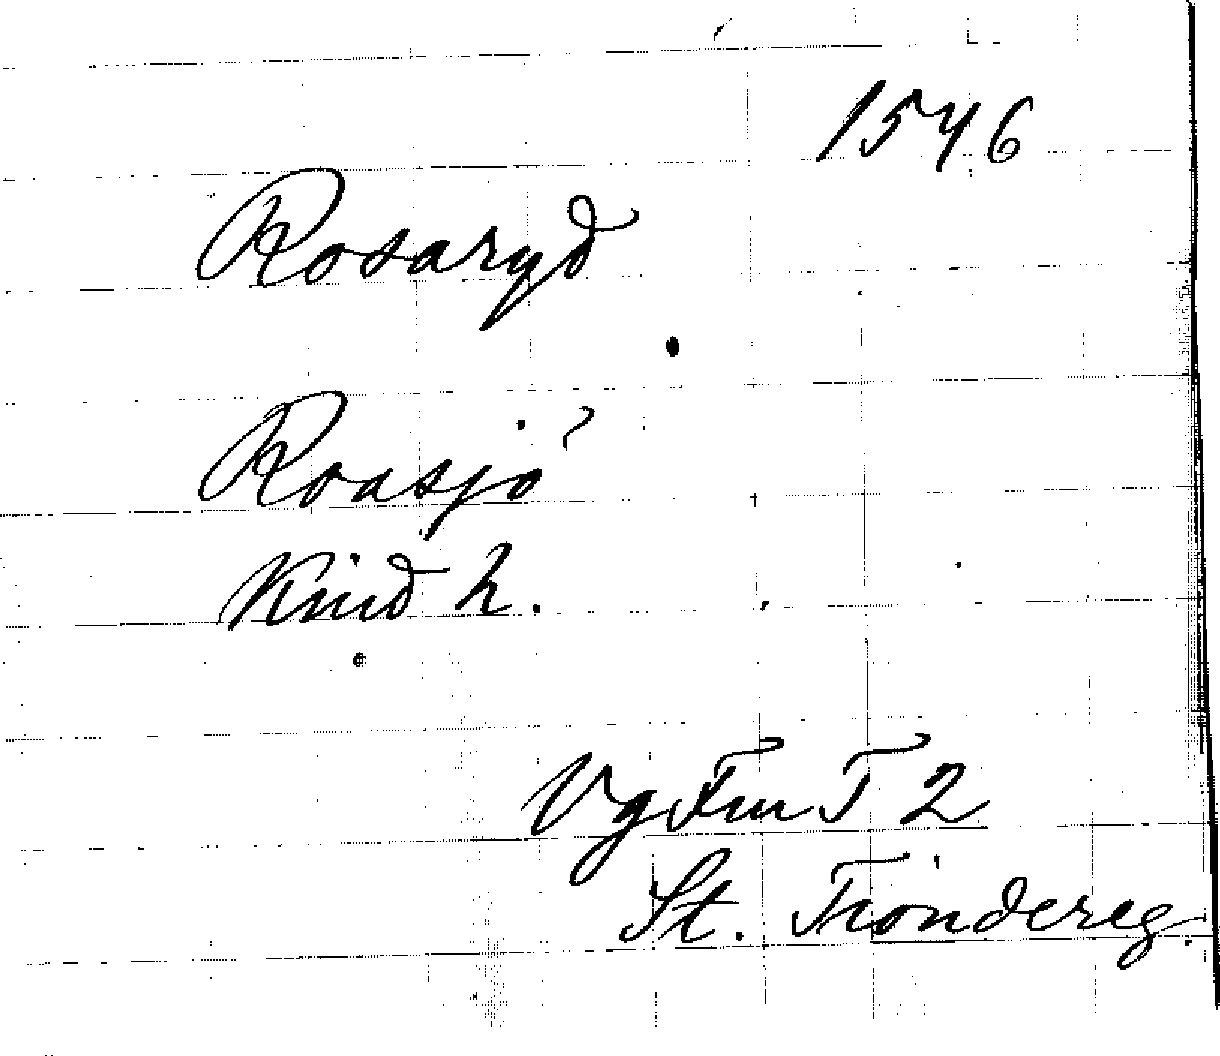 1546
Rosaryd
Roasjö
Kind h.
Vg Fm T 2
St. Tiondereg